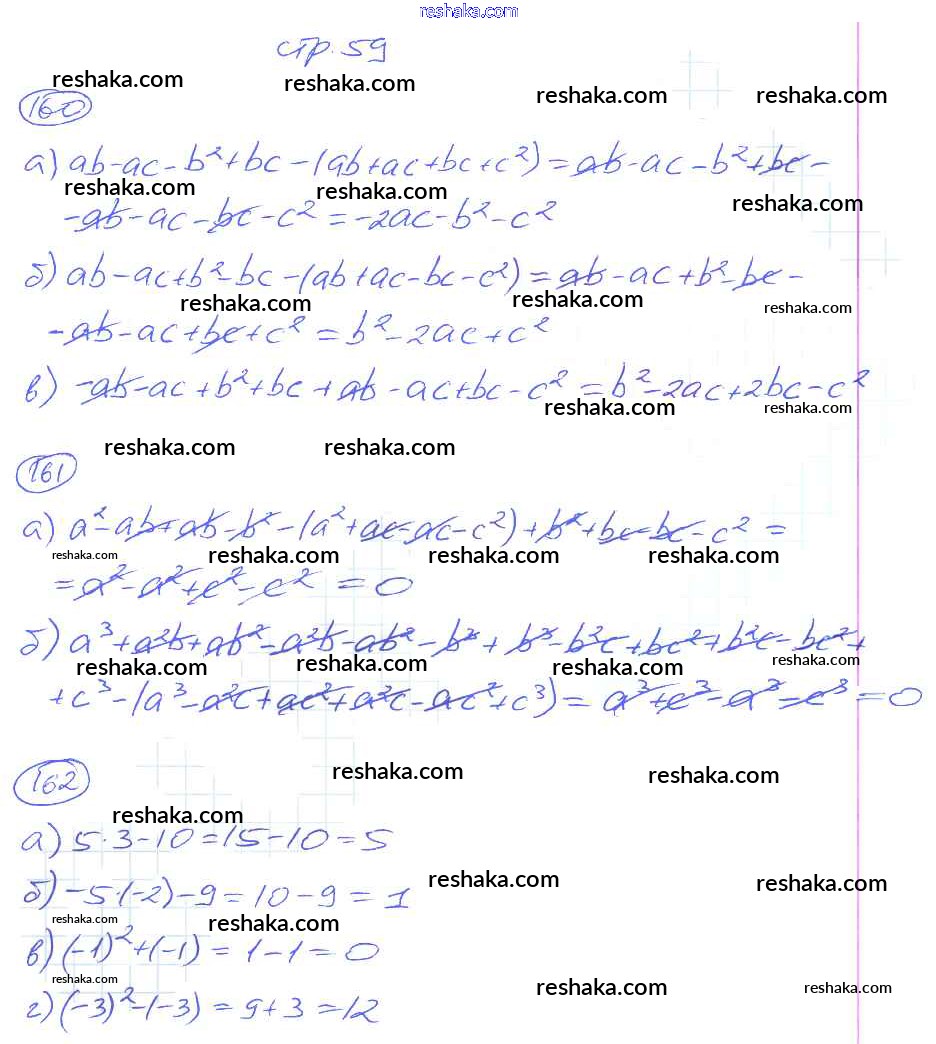 reshaka.com
стр. 59
reshaka.com reshaka.com reshaka.com reshaka.com
160
а) ab-ac-b²+bc-(ab+ac+bc+c²)=ab-ac-b²+bc-
reshaka.com reshaka.com reshaka.com
-ab-ac-bc-c²=-2ac-b²-c²
б) ab-ac+b²-bc-(ab+ac-bc-c²)=ab-ac+b²-bc-
reshaka.com reshaka.com reshaka.com
-ab-ac+bc+c²=b²-2ac+c²
в) -ab-ac+b²+bc+ab-ac+bc-c²=b²-2ac+2bc-c²
reshaka.com reshaka.com
reshaka.com reshaka.com
161
а) a²-ab+ab-b²-(a²+ac-ac-c²)+b²+bc-bc-c²=
reshaka.com reshaka.com reshaka.com reshaka.com
=a²-a²+c²-c²=0
б) a³+a²b+ab²-a²b-ab²-b³+b³-b²c+bc²+b²c-bc²+
reshaka.com reshaka.com reshaka.com reshaka.com
+c³-(a³-a²c+ac²+a²c-ac²+c³)=a³+c³-a³-c³=0
162
reshaka.com reshaka.com
reshaka.com
а) 5·3-10=15-10=5
б) -5·(-2)-9=10-9=1
reshaka.com reshaka.com
reshaka.com reshaka.com
в) (-1)²+(-1)=1-1=0
reshaka.com reshaka.com reshaka.com
г) (-3)²-(-3)=9+3=12